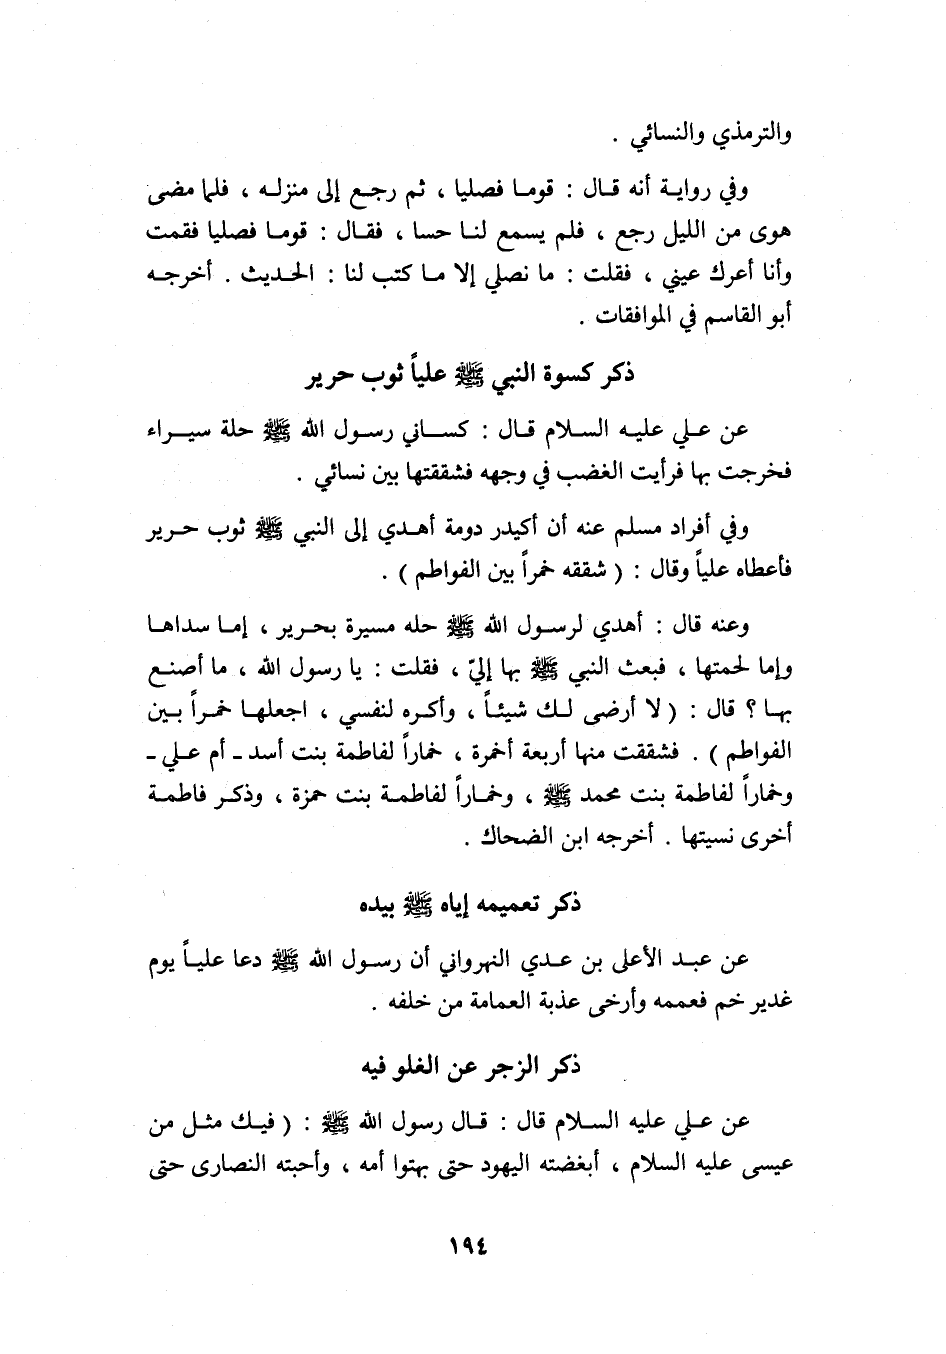 والترمذي والنسائي .
وفي رواية أنه قال : قوما فصليا ، ثم رجع إلى منزله ، فلما مضى
هوى من الليل رجع ، فلم يسمع لنا حسا ، فقال : قوما فصليا فقمت
وأنا أعرك عيني ، فقلت : ما نصلي إلا ما كتب لنا : الحديث . أخرجه
أبو القاسم في الموافقات .
ذكر كسوة النبي ﷺ علياً ثوب حرير
عن علي عليه السلام قال : كساني رسول الله ﷺ حلة سيراء
فخرجت بها فرأيت الغضب في وجهه فشققتها بين نسائي .
وفي أفراد مسلم عنه أن أكيدر دومة أهدي إلى النبي ﷺ ثوب حرير
فأعطاه علياً وقال : ( شققه خمراً بين الفواطم ) .
وعنه قال : أهدي لرسول الله ﷺ حله مسيرة بحرير ، إما سداها
وإما لحمتها ، فبعث النبي ﷺ بها إليّ ، فقلت : يا رسول الله ، ما أصنع
بها ؟ قال : ( لا أرضى لك شيئاً ، وأكره لنفسي ، اجعلها خمراً بين
الفواطم ) . فشققت منها أربعة أخمرة ، خماراً لفاطمة بنت أسد - أم علي -
وخماراً لفاطمة بنت محمد ﷺ ، وخماراً لفاطمة بنت حمزة ، وذكر فاطمة
أخرى نسيتها . أخرجه ابن الضحاك .
ذكر تعميمه إياه ﷺ بيده
عن عبد الأعلى بن عدي النهرواني أن رسول الله ﷺ دعا علياً يوم
غدير خم فعممه وأرخى عذبة العمامة من خلفه .
ذكر الزجر عن الغلو فيه
عن علي عليه السلام قال : قال رسول الله ﷺ : ( فيك مثل من
عيسى عليه السلام ، أبغضته اليهود حتى بهتوا أمه ، وأحبته النصارى حتى
١٩٤